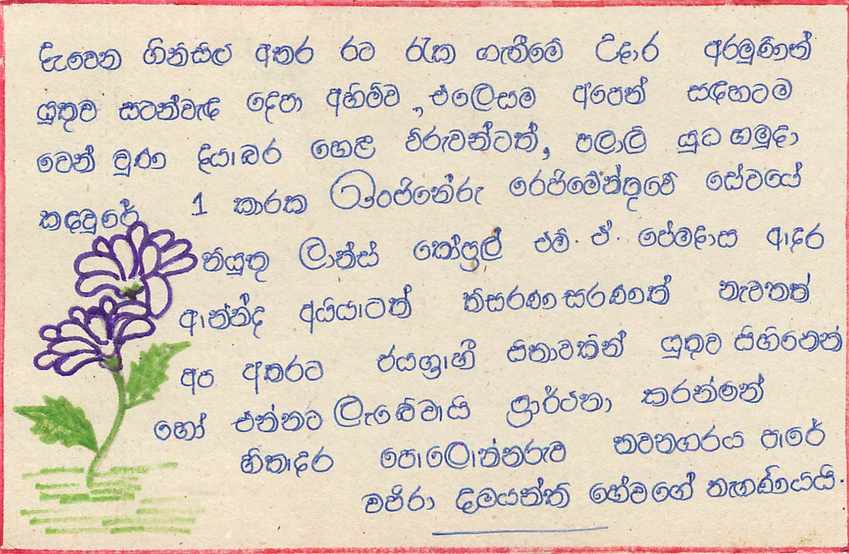 දැවෙන ගිනිසිළු අතර රට රැක ගැනීමේ උදාර අරමුණින්
යුතුව සටන්වැද දෙපා අහිමිව , එලෙසම අපෙන් සඳහටම
වෙන් වුණ දියාබර හෙළ විරුවන්ටත්, පලාලි යුධ හමුදා
කඳවුරේ 1 කාරක ඉංජිනේරු රෙජිමේන්තුවේ සේවයේ
නියුතු ලාන්ස් කෝප්‍රල් එම්. ඒ. ප්‍රේමදාස ආදර
ආනන්ද අයියාටත් තිසරණ සරණත් නැවතත්
අප අතරට ජයග්‍රාහී සිනාවකින් යුතුව සිහිනෙන්
හෝ එන්නට ලැබේවායි ප්‍රාර්ථනා කරන්නේ
හිතාදර පොලොන්නරුව නවනගරය පාරේ
වජිරා දමයන්ති හේවගේ නැගණියයි.